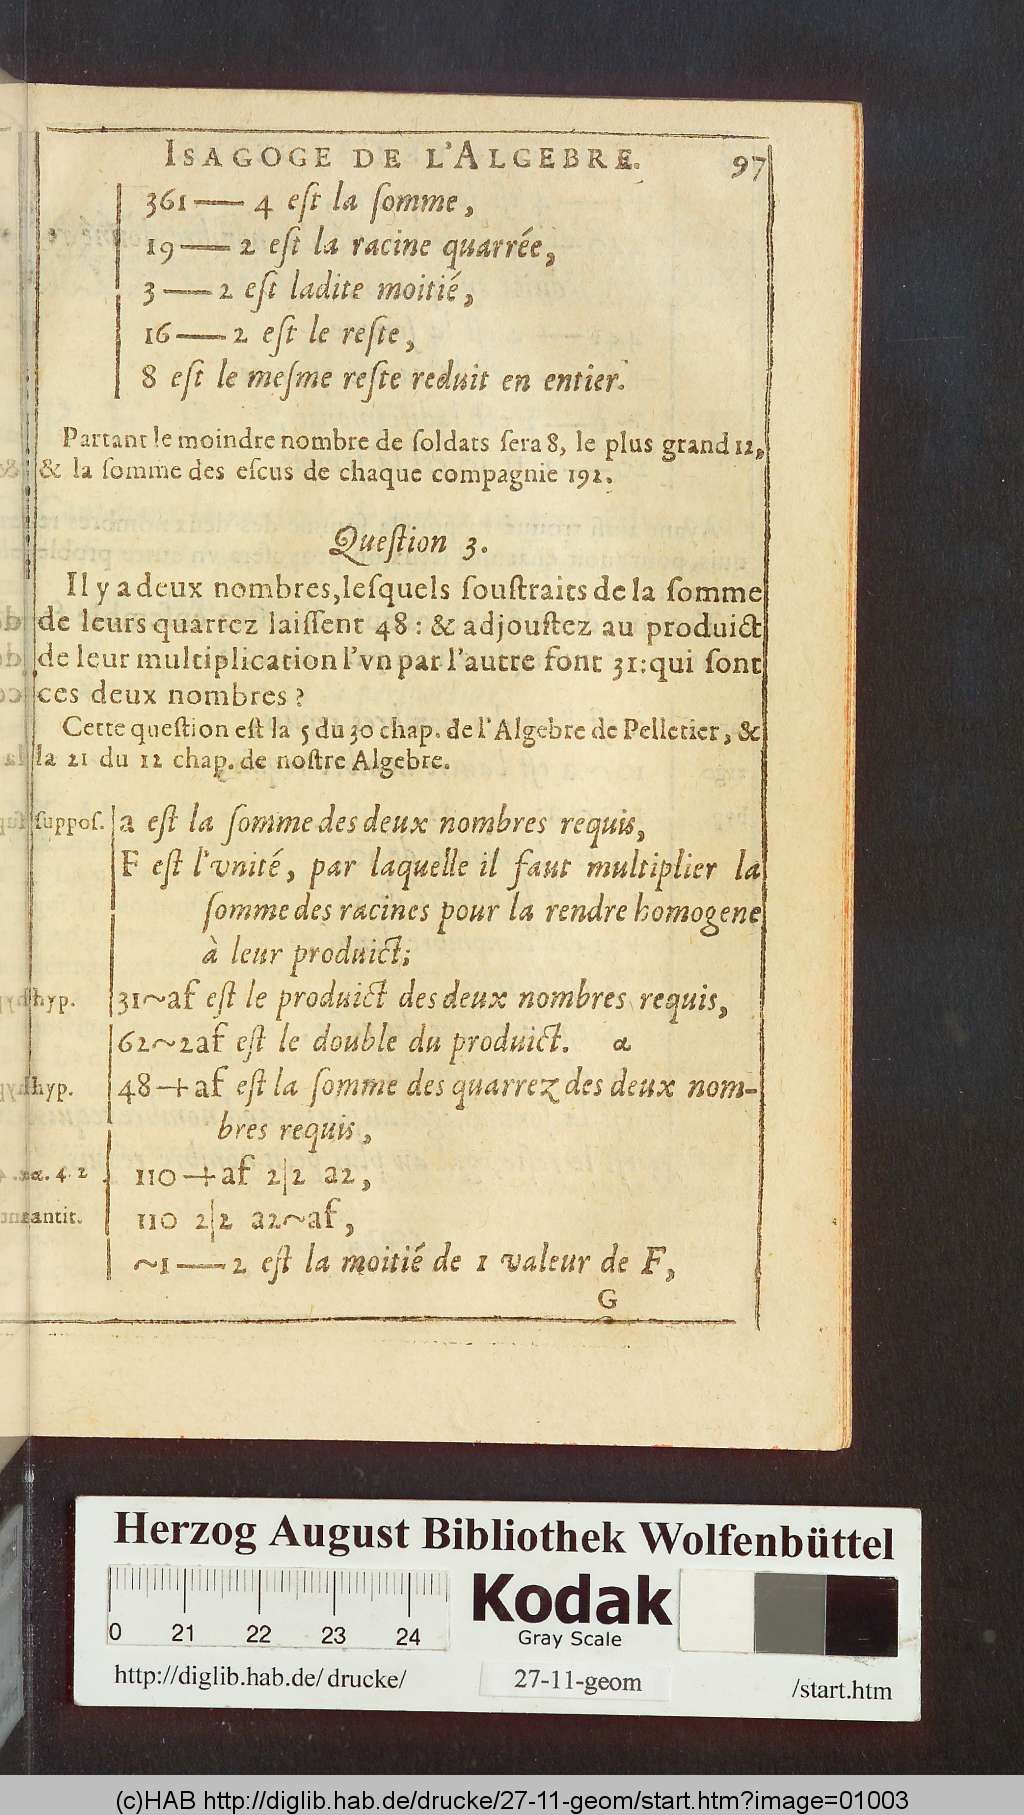 ISAGOGE DE L'ALGEBRE. 97
361—4 eſt la ſomme,
19—2 eſt la racine quarrée,
3—2 eſt ladite moitié,
16—2 eſt le reſte,
8 eſt le meſme reſte reduit en entier.
Partant le moindre nombre de ſoldats ſera 8, le plus grand 12,
& la ſomme des eſcus de chaque compagnie 192.
Queſtion 3.
Il y a deux nombres, leſquels ſouſtraits de la ſomme
de leurs quarrez laiſſent 48: & adjouſtez au produict
de leur multiplication l'vn par l'autre font 31: qui ſont
ces deux nombres?
Cette queſtion eſt la 5 du 30 chap. de l'Algebre de Pelletier, &
la 21 du 12 chap. de noſtre Algebre.
ſuppoſ. a eſt la ſomme des deux nombres requis,
F eſt l'vnité, par laquelle il faut multiplier la
ſomme des racines pour la rendre homogene
à leur produict;
hyp. 31~af eſt le produict des deux nombres requis,
62~2af eſt le double du produict. α
hyp. 48+af eſt la ſomme des quarrez des deux nom-
bres requis,
α. 4. 2 110+af 2|2 a2,
antit. 110 2|2 a2~af,
~1—2 eſt la moitié de 1 valeur de F,
G
Herzog August Bibliothek Wolfenbüttel
0 21 22 23 24
Kodak
Gray Scale
http://diglib.hab.de/drucke/ 27-11-geom /start.htm
(c)HAB http://diglib.hab.de/drucke/27-11-geom/start.htm?image=01003